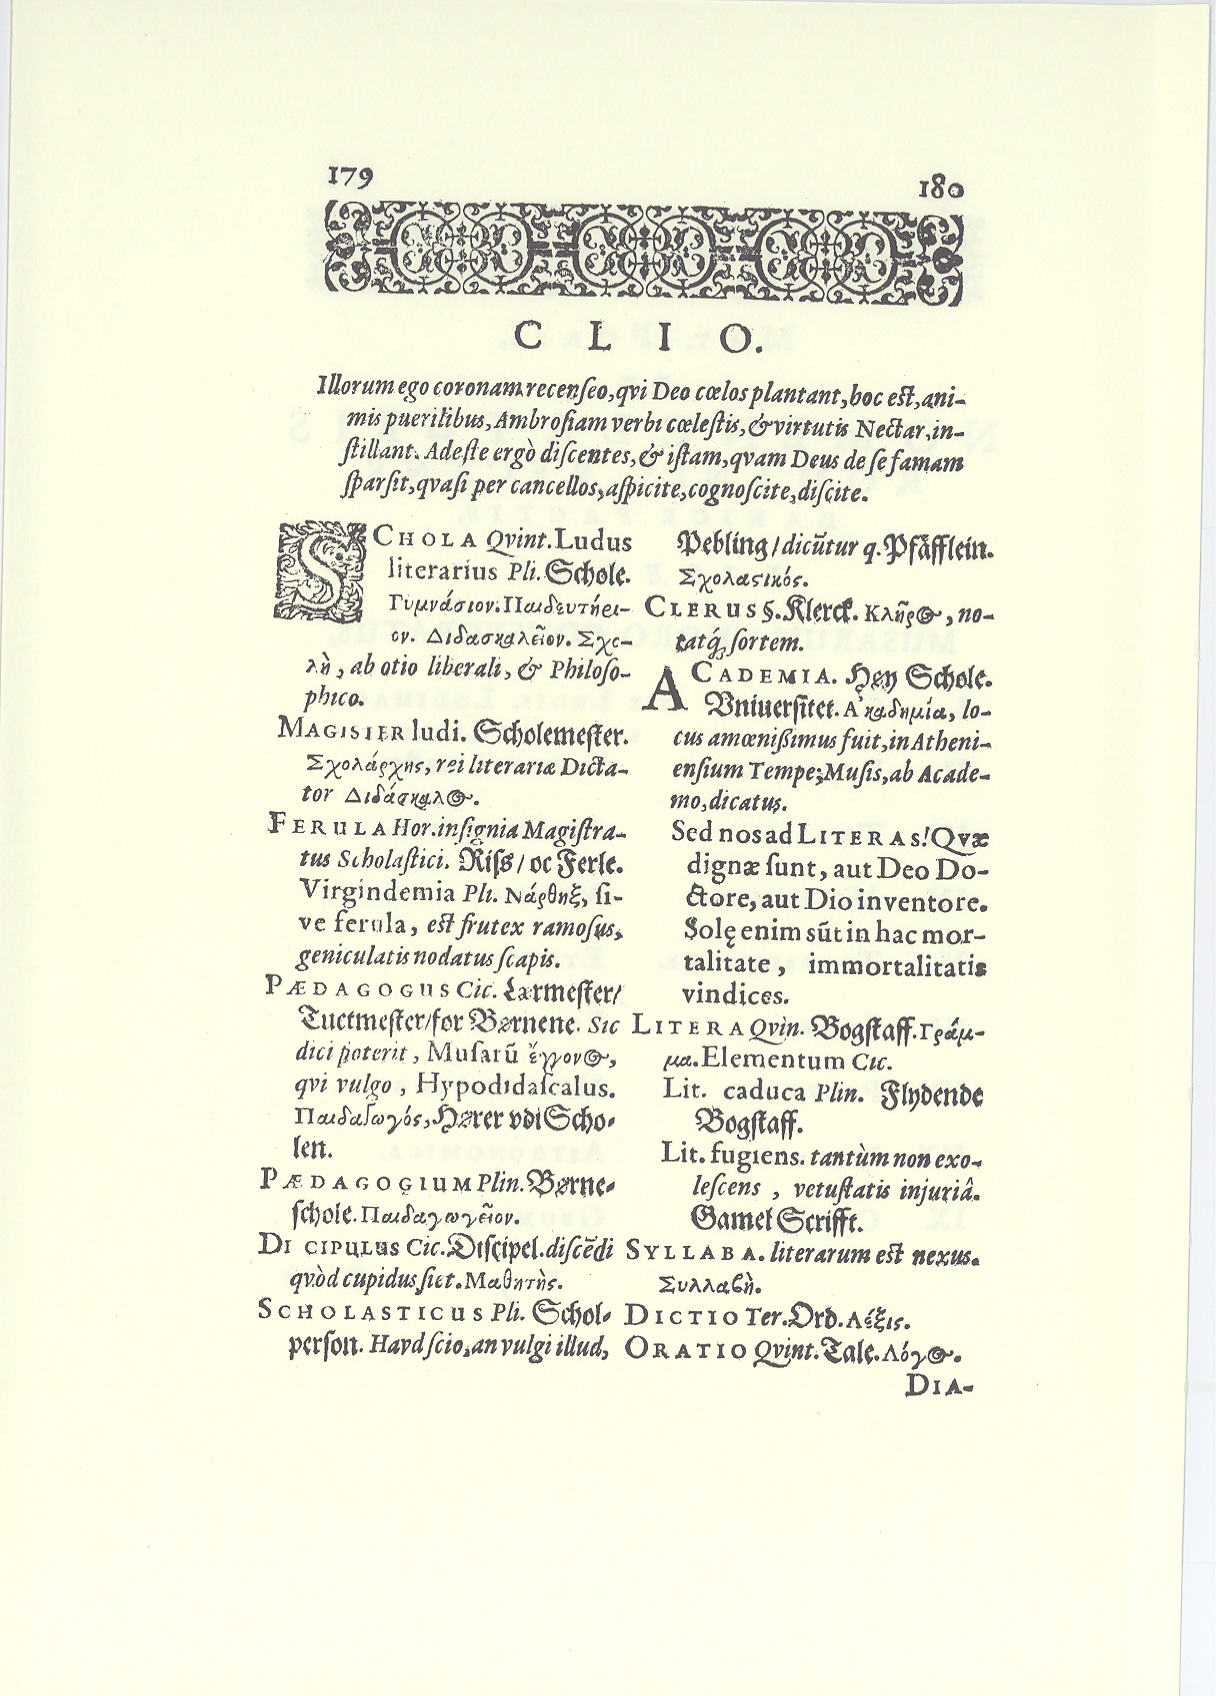 179
180
CLIO.
Illorum ego coronam recenſeo, qvi Deo cœlos plantant, hoc eſt, ani-
mis puerilibus, Ambroſiam verbi cœleſtis, & virtutis Nectar, in-
ſtillant. Adeſte ergò diſcentes, & iſtam, qvam Deus de ſe famam
ſparſit, qvaſi per cancellos, aſpicite, cognoſcite, diſcite.
SCHOLA Qvint. Ludus
literarius Pli. Schole.
Γυμνάσιον. Παιδευτήρι-
ον. Διδασκαλεῖον. Σχο-
λὴ, ab otio liberali, & Philoſo-
phico.
MAGISTER ludi. Scholemeſter.
Σχολάρχης, rei literariæ Dicta-
tor Διδάσκαλος.
FERULA Hor. inſignia Magiſtra-
tus Scholaſtici. Riſs / oc Ferle.
Virgindemia Pli. Νάρθηξ, ſi-
ve ferula, eſt frutex ramoſus,
geniculatis nodatus ſcapis.
PÆDAGOGUS Cic. Lærmeſter/
Tuctmeſter/for Børnene. Sic
dici poterit, Muſarũ ἔγγονος,
qvi vulgo, Hypodidaſcalus.
Παιδαγωγός, Hører vdi Scho-
len.
PÆDAGOGIUM Plin. Børne-
ſchole. Παιδαγωγεῖον.
DISCIPULUS Cic. Diſcipel. diſcẽdi
qvòd cupidus ſiet. Μαθητὴς.
SCHOLASTICUS Pli. Schol-
perſon. Havd ſcio, an vulgi illud,
Pebling / dicũtur q. Pfäfflein.
Σχολαϛικός.
CLERUS §. Klerck. Κλῆρος, no-
tatq́; ſortem.
ACADEMIA. Høy Schole.
Vniuerſitet. Ἀκαδημία, lo-
cus amœniſſimus fuit, in Atheni-
enſium Tempe; Muſis, ab Acade-
mo, dicatus.
Sed nos ad LITERAS! Qvæ
dignæ ſunt, aut Deo Do-
ctore, aut Dio inventore.
Solę enim sũt in hac mor-
talitate, immortalitatis
vindices.
LITERA Qvin. Bogſtaff. Γράμ-
μα. Elementum Cic.
Lit. caduca Plin. Flydende
Bogſtaff.
Lit. fugiens. tantùm non exo-
leſcens, vetuſtatis injuriâ.
Gamel Scrifft.
SYLLABA. literarum eſt nexus.
Συλλαβὴ.
DICTIO Ter. Ord. Λέξις.
ORATIO Qvint. Tale. Λόγος.
DIA-